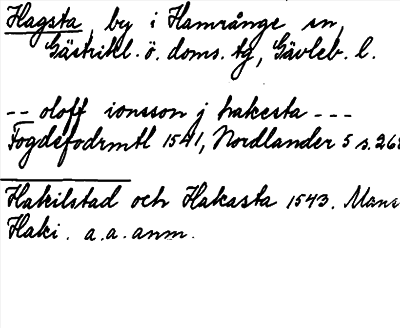 Hagsta, by i Hamrånge sn,
Gästrikl. ö. doms. tg, Gävleb. l.
-- oloff ionsson j hakesta ---
Fogdefodrmtl 1541, Nordlander 5 s. 268
Hakilstad och Hakasta 1543. Mans
Haki. a.a. anm.